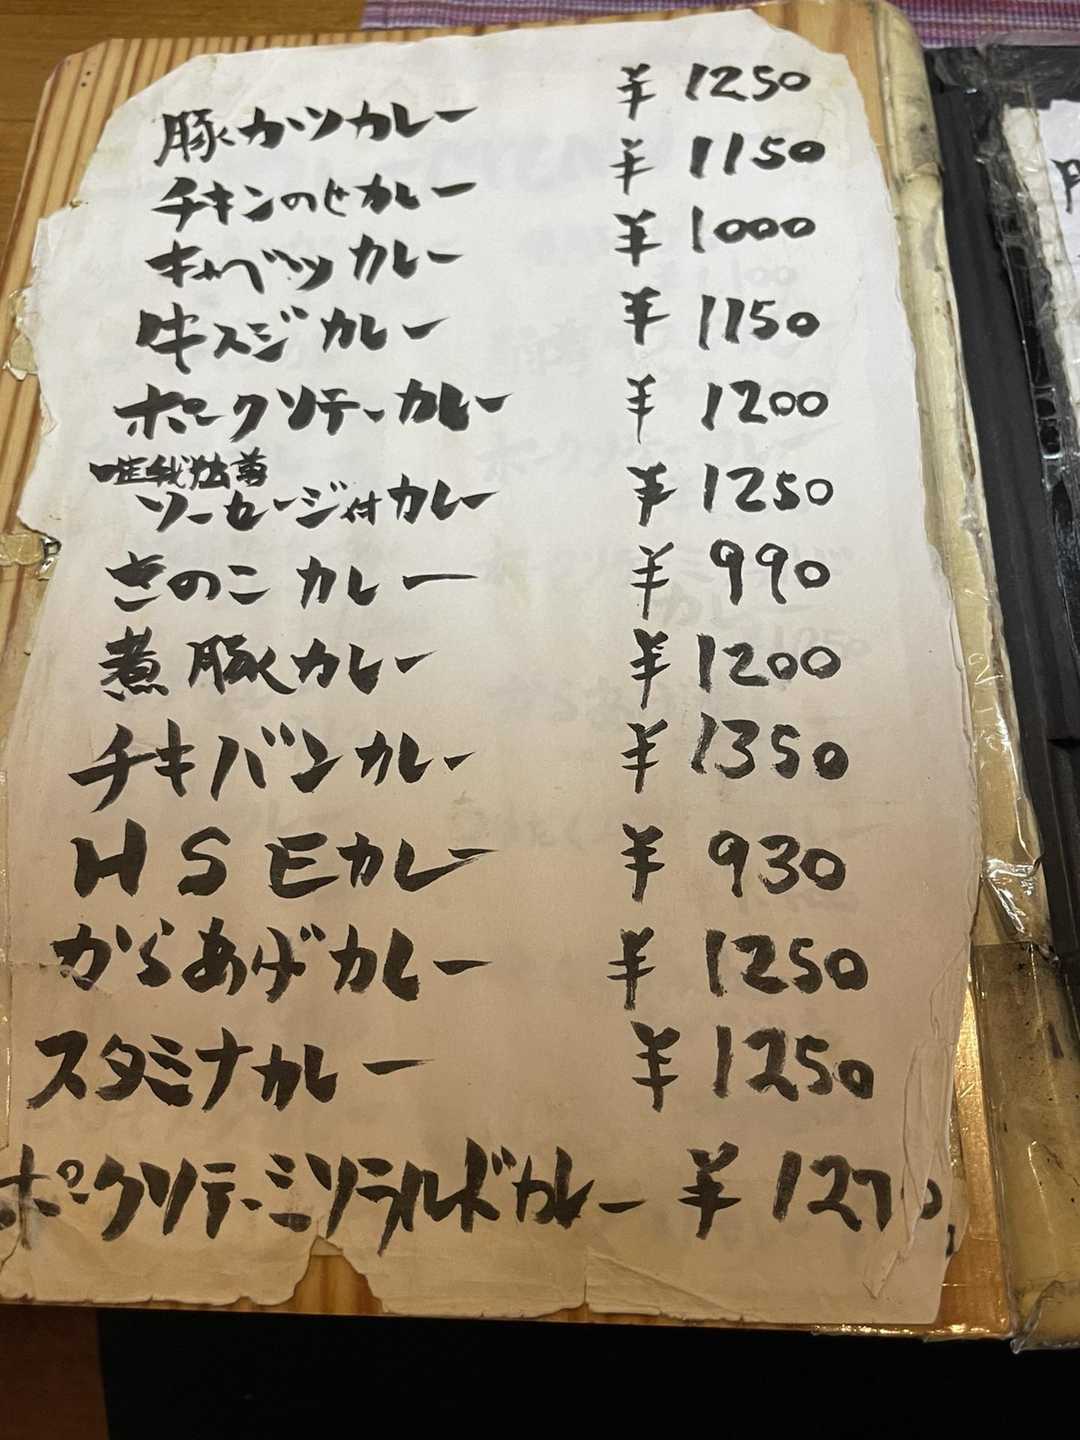 豚カツカレー ¥1250
チキンのせカレー ¥1150
キャベツカレー ¥1000
牛スジカレー ¥1150
ポークソテーカレー ¥1200
唯我独尊
ソーセージ付カレー ¥1250
きのこカレー ¥990
煮豚カレー ¥1200
チキバンカレー ¥1350
HSEカレー ¥930
からあげカレー ¥1250
スタミナカレー ¥1250
ポークソテーミソラルドカレー ¥1270